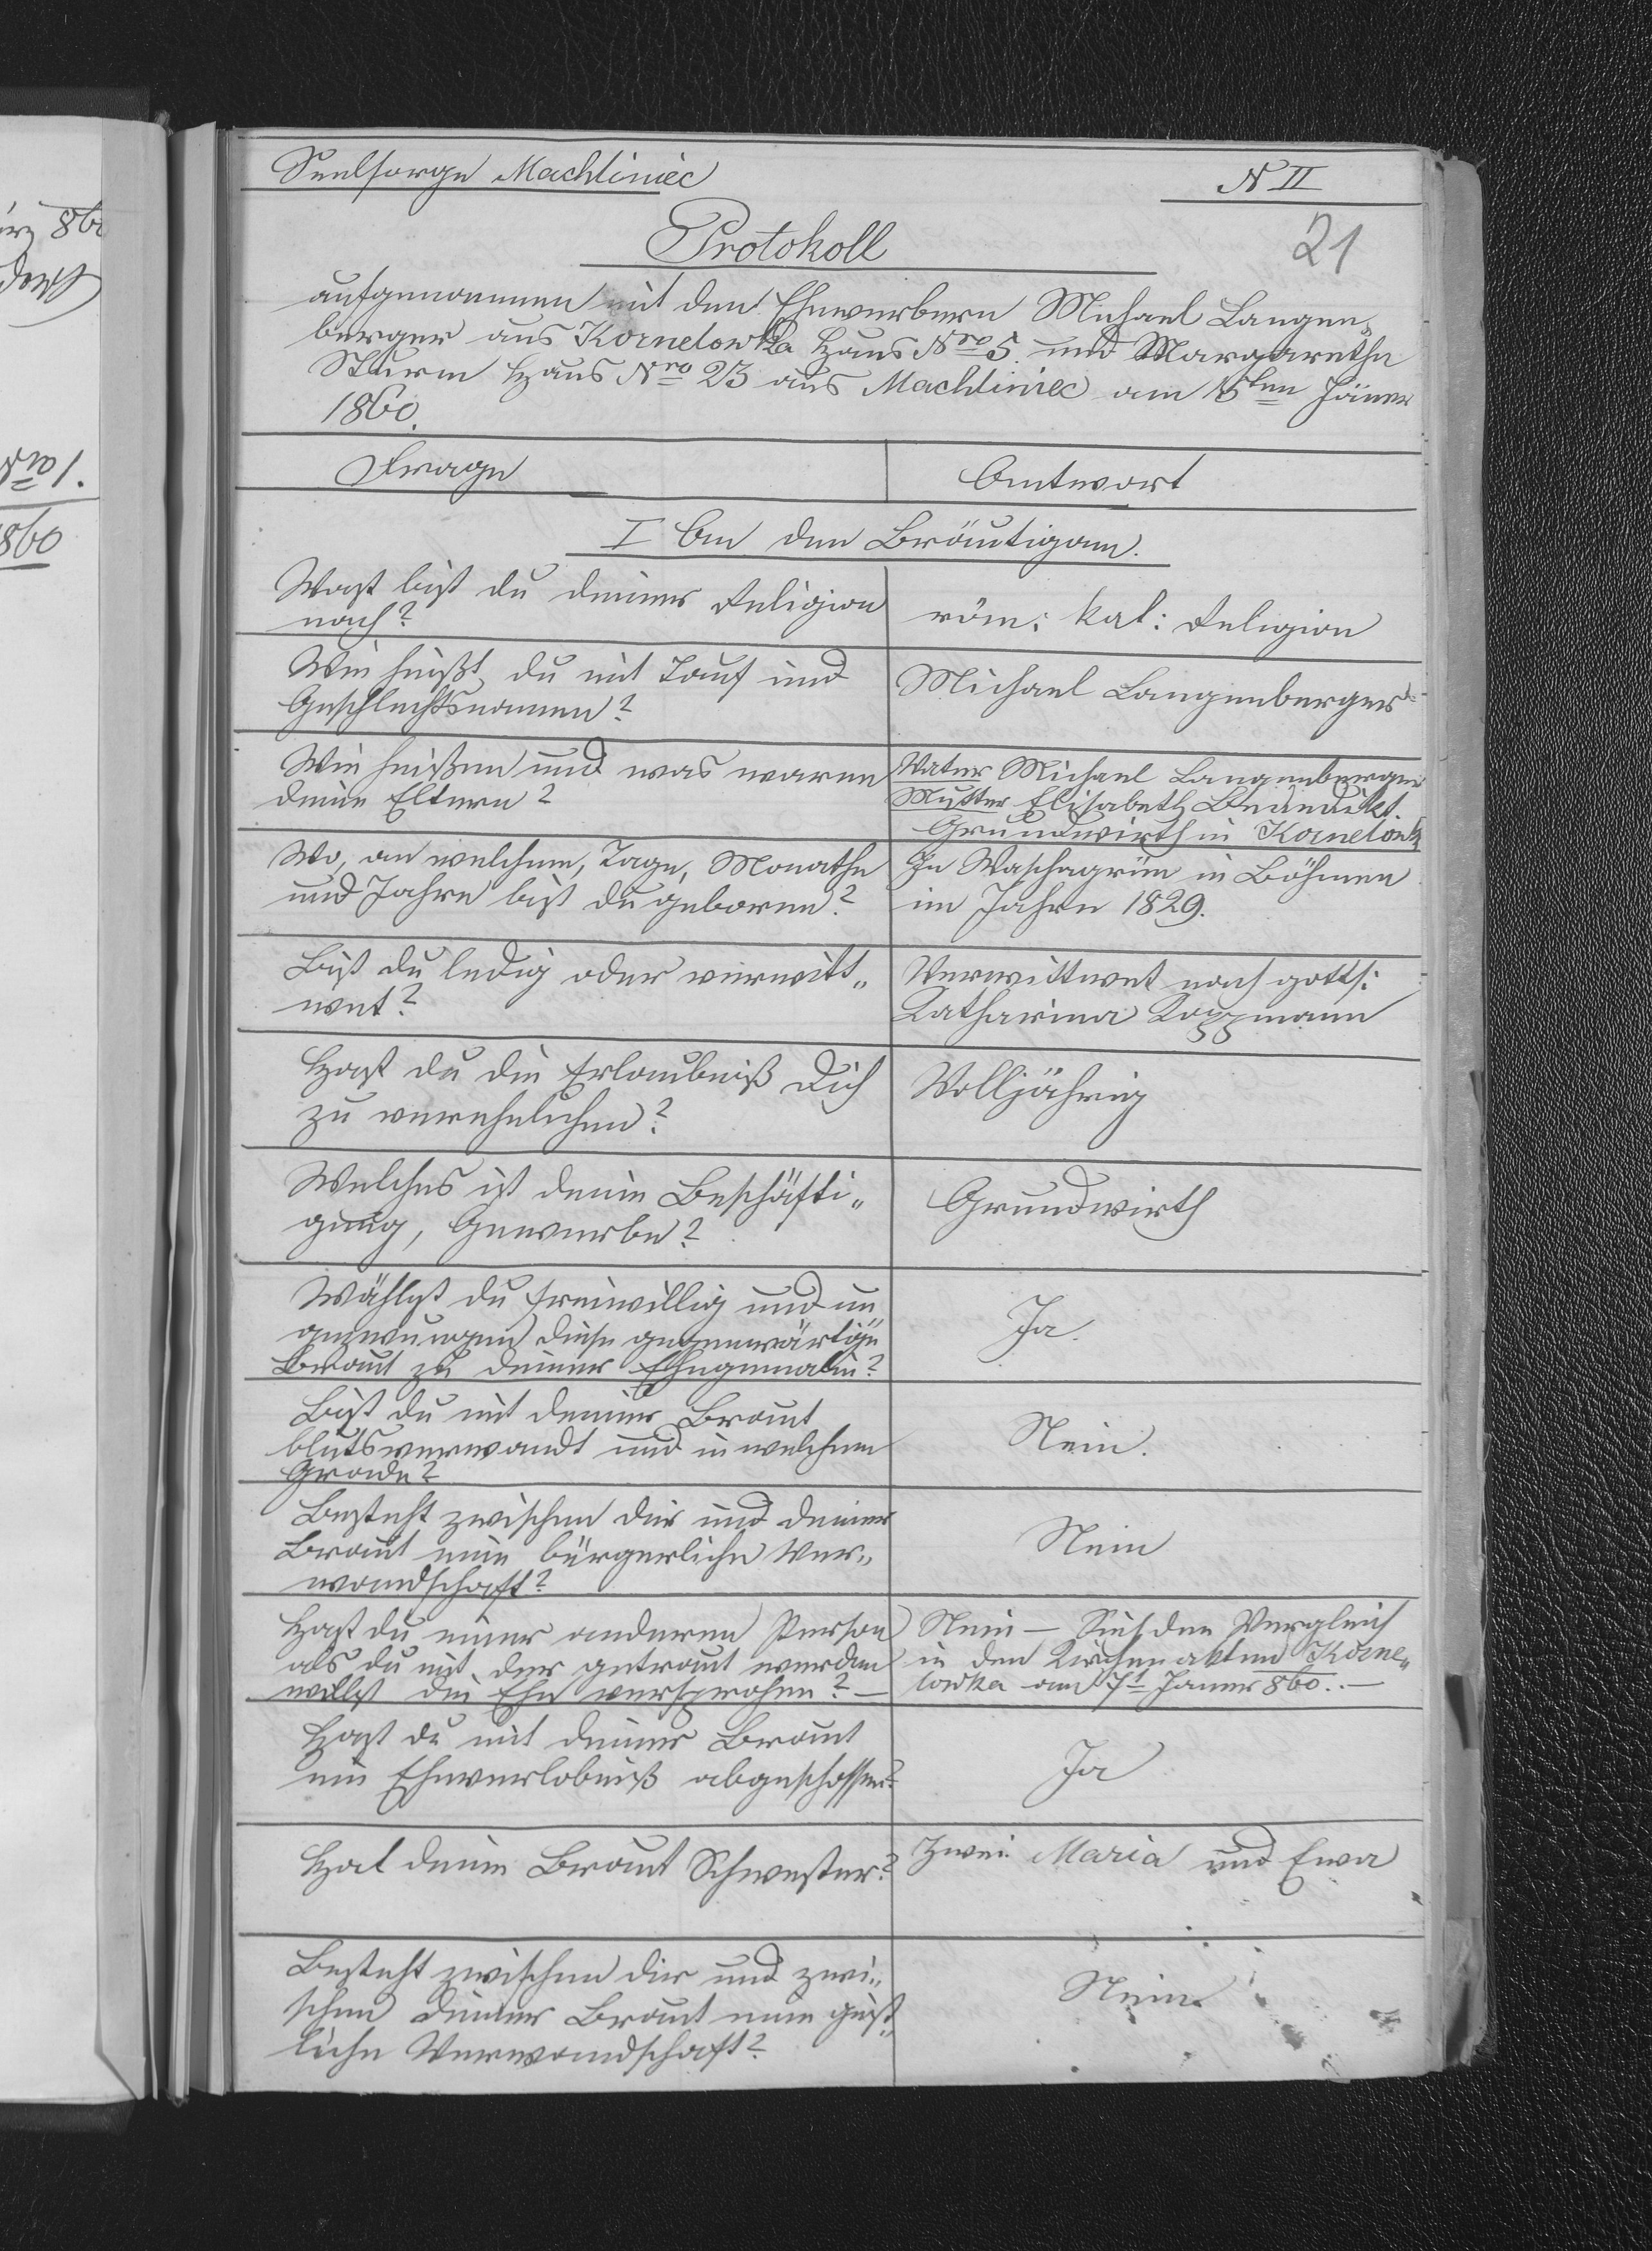 Seelsorge Machliniec
N II
21
Protokoll
aufgenommen mit den Ehewerbern Michael Langen„
berger aus Kornelowka Haus Nro 5. und Margaretha
Sturm Haus Nro 23 aus Machliniec am 15ten Jäner
1860.
Frage
Antwort
I An den Bräutigam.
Wast bist du deiner Religion
nach?
röm: kat: Religion
Wie heißt du mit Tauf und
Geschlechtsnamen?
Michael Langenberger
Wie heißen und was waren
deine Eltern?
Vater Michael Langenberger
Mutter Elisabeth Benedikt.
Grundwirth in Kornelowk
Wo, an welchem, Tage, Monathe
und Jahre bist du geboren?
In Waschagrün in Böhmen
im Jahre 1829.
Bist du ledig oder verwitt„
wet?
Verwittwet nach gotts:
Katharina Koppmann
Hast du die Erlaubniß Dich
zu verehelichen?
Volljährig
Welches ist deine Beschäfti„
gung, Gewerbe?
Grundwirth
Wählst du freiwillig und un
gezwungen diese gegenwärtige
Braut zu deiner Ehegemalin?
Ja.
Bist du mit deiner Braut
blutsverwandt und in welchem
Grade?
Nein.
Besteht zwischen dir und deiner
Braut eine bürgerliche Ver„
wandschaft?
Nein
Hast du einer anderen Person
als du mit der getraut werden
willst die Ehe versprochen? —
Nein — Sieh den Vergleich
in den Kirchenakten Korne„
lowka am 7t Janner 860.. —
Hast du mit deiner Braut
ein Eheverlobniß abgeschossen?
Ja
Hat deine Braut Schwester?
Zwei Maria und Ewa
Besteht zwischen dir und zwi„
schen deiner Braut eine geist„
liche Verwandschaft?
Nein.
860
860